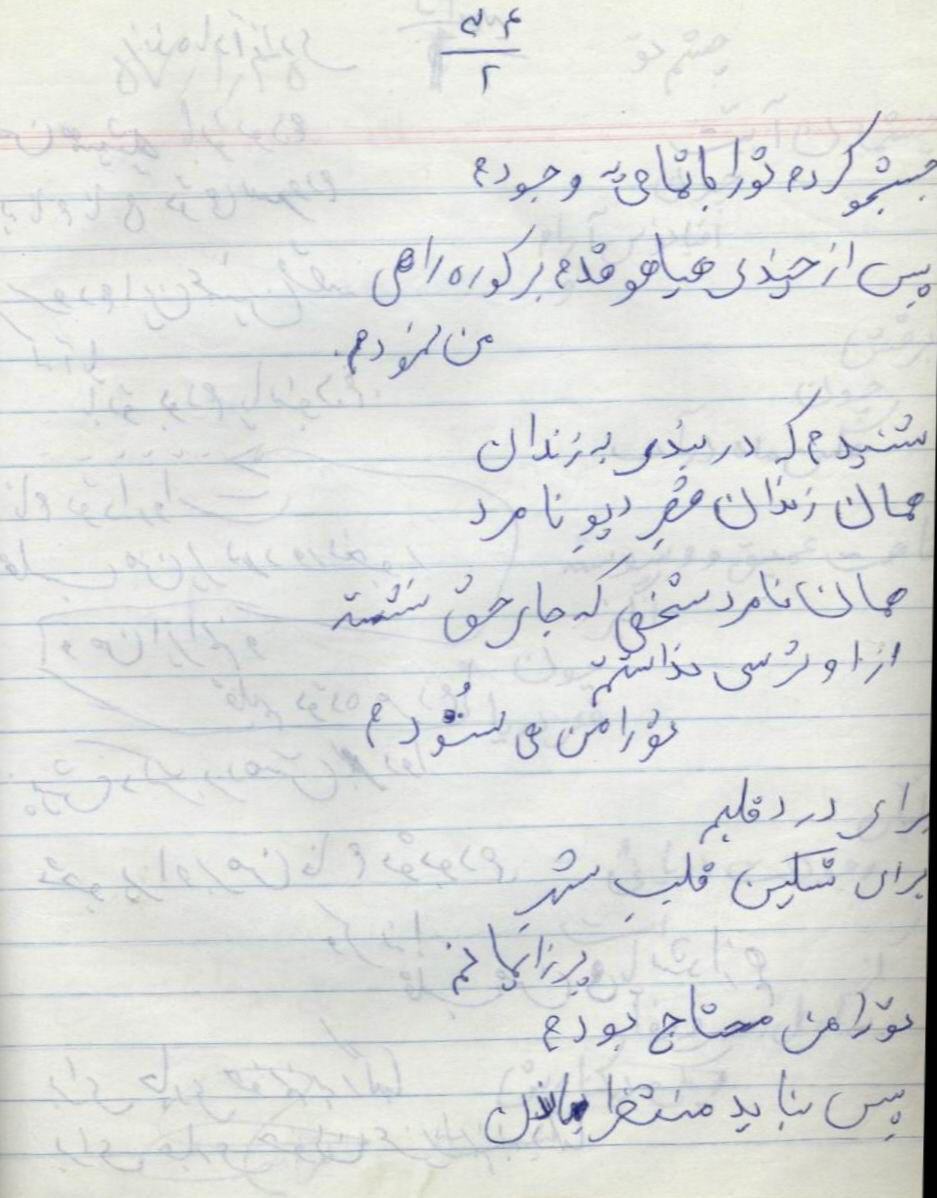 ۳۴
۲
جستجو کردم تو را با تمامیه وجودم
پس از چندی هیاهو قدم بر کوره راهی
من نمودم.
شنیدم که در بندی به زندان
همان زندان مقر دیو نامرد
همان نامرد شخصی که جای حق نشسته
از او ترسی نداشتم
تو را من می ستودم
برای درد قلبم
برای تسکین قلب شهر
پر از ماتم
تو را من محتاج بودم
پس نباید منتظر